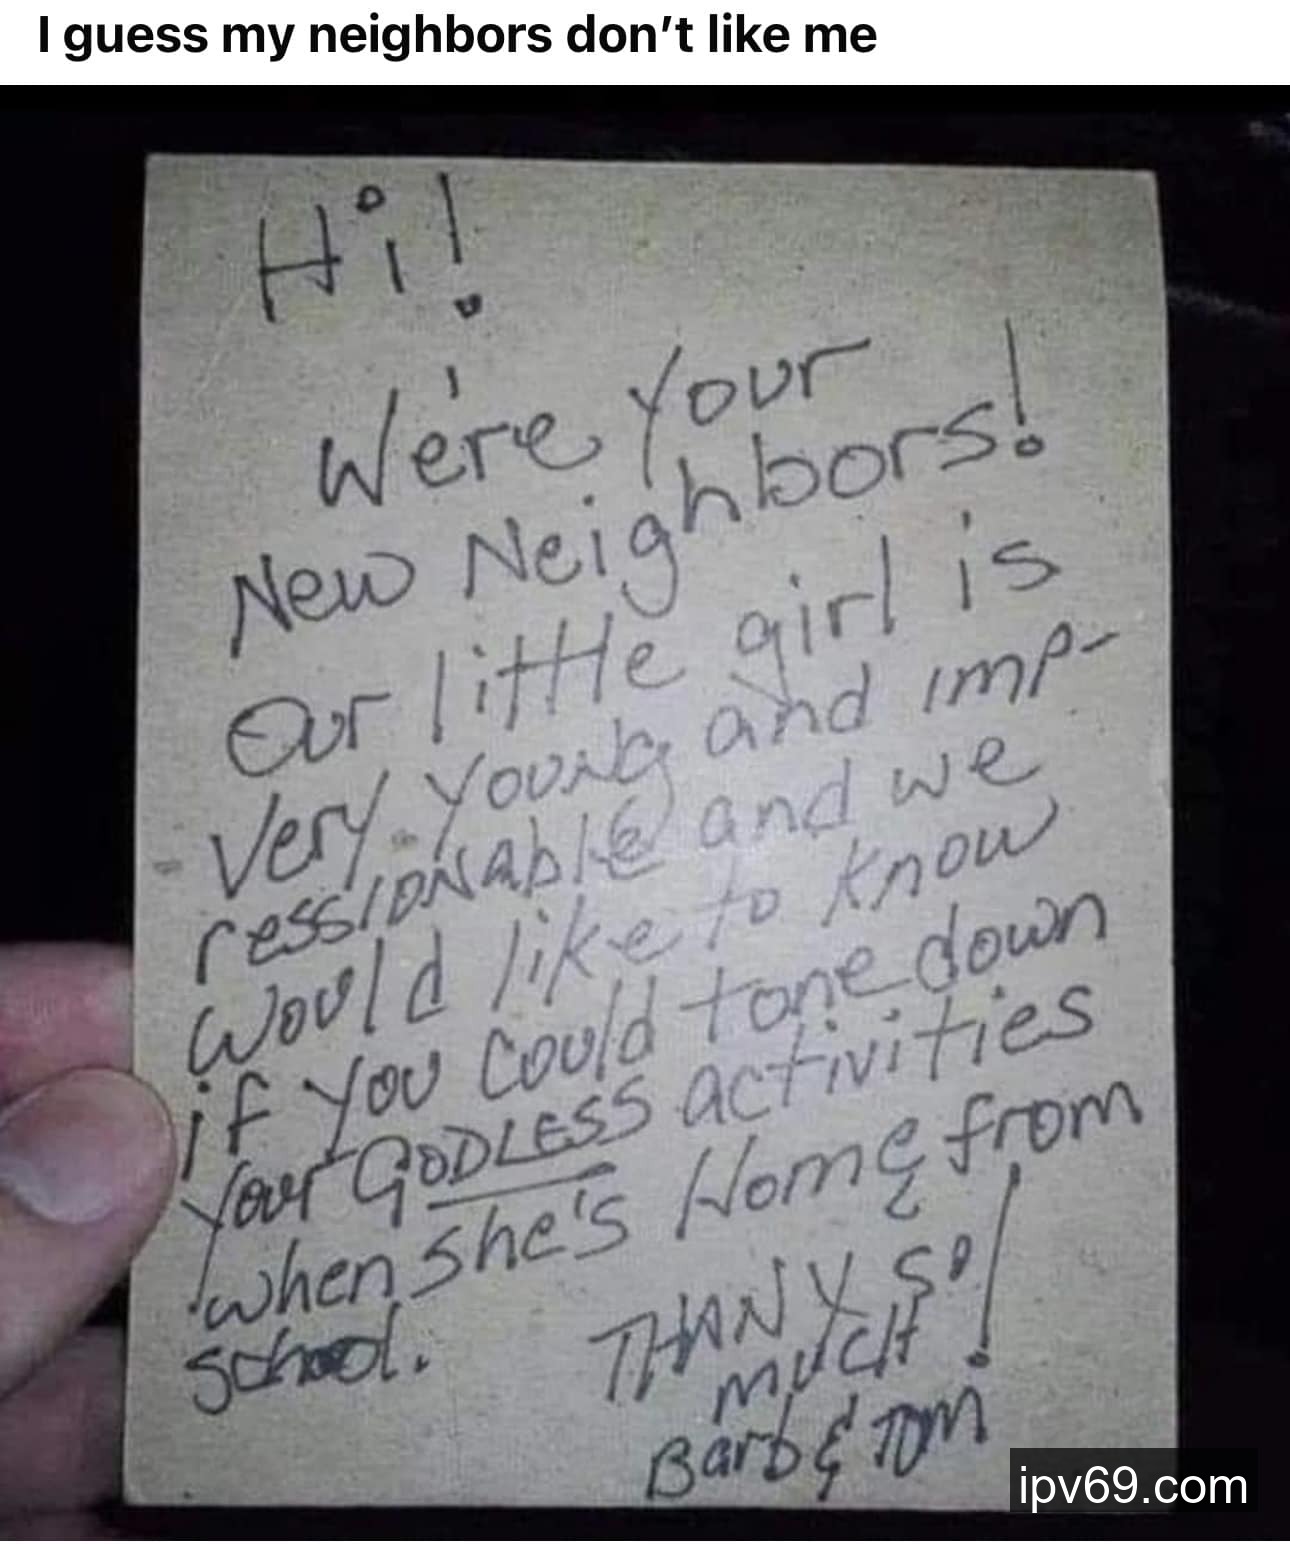 I guess my neighbors don't like me
Hi!
We're Your
New Neighbors!
Our little girl is
Very Young and imp-
ressionable and we
would like to know
if you could tone down
your GODLESS activities
when she's Home from
school.
THANX SO
mucH!
Barb & Tom
ipv69.com